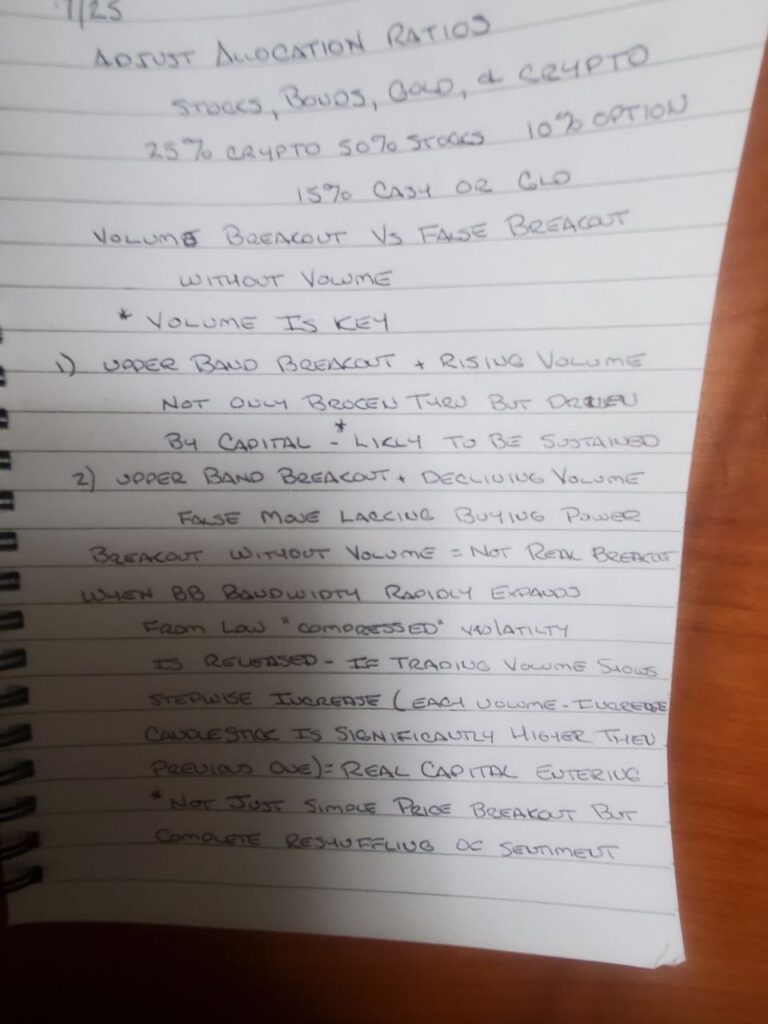 7/25
ADJUST ALLOCATION RATIOS
STOCKS, BONDS, GOLD, & CRYPTO
25% CRYPTO 50% STOCKS 10% OPTION
15% CASH OR GLD
VOLUME BREAKOUT VS FALSE BREAKOUT
WITHOUT VOLUME
* VOLUME IS KEY
1) UPPER BAND BREAKOUT + RISING VOLUME
NOT ONLY BROCEN THRU BUT DRIVEN
BY CAPITAL - * LIKLY TO BE SUSTAINED
2) UPPER BAND BREAKOUT + DECLINING VOLUME
FALSE MOVE LACKING BUYING POWER
BREAKOUT WITHOUT VOLUME = NOT REAL BREAKOUT
WHEN BB BANDWIDTH RAPIDLY EXPANDS
FROM LOW "COMPRESSED" VIOLATILTY
IS RELEASED - IF TRADING VOLUME SHOWS
STEPWISE INCREASE (EACH VOLUME - INCREASE
CANDLESTICK IS SIGNIFICANTLY HIGHER THEN
PREVIOUS ONE) = REAL CAPITAL ENTERING
* NOT JUST SIMPLE PRICE BREAKOUT BUT
COMPLETE RESHUFFLING OF SENTIMENT